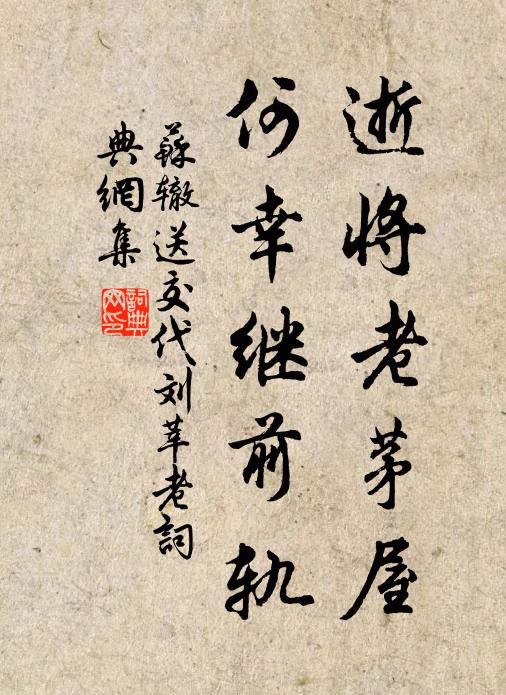 逝将老茅屋
何幸继前轨
蘇辙送交代刘莘老詞
典網集
詞典
网印